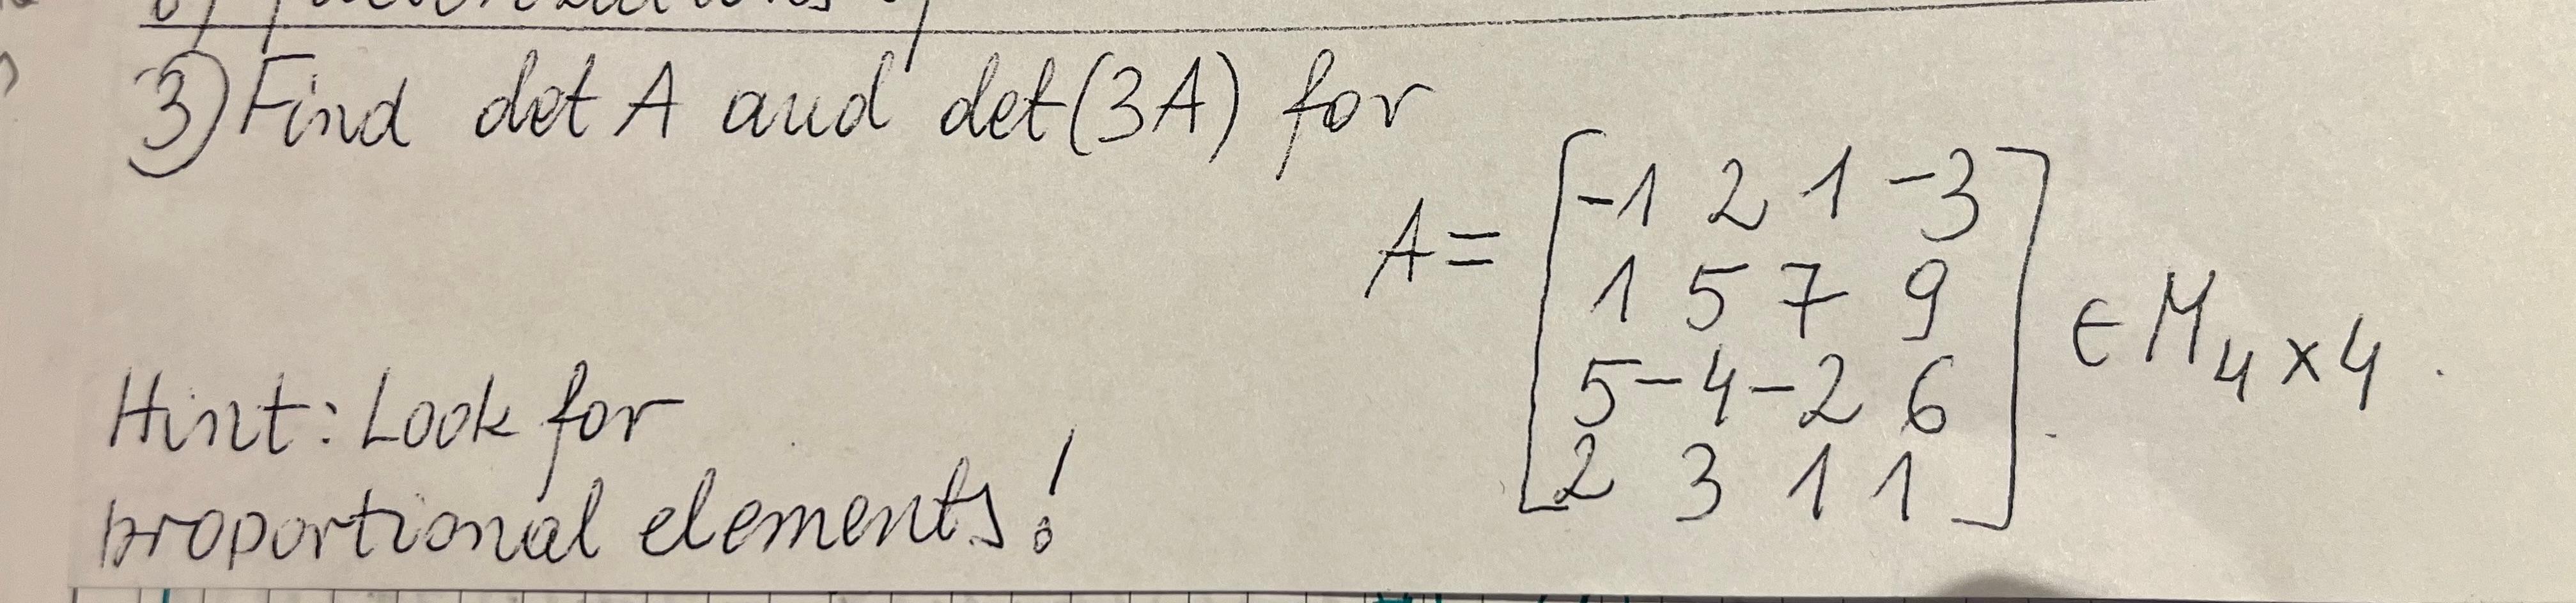 3) Find det A and det(3A) for
A = [ -1 2 1 -3
1 5 7 9
5 -4 -2 6
2 3 1 1 ] ∈ M4×4.
Hint: Look for
proportional elements!